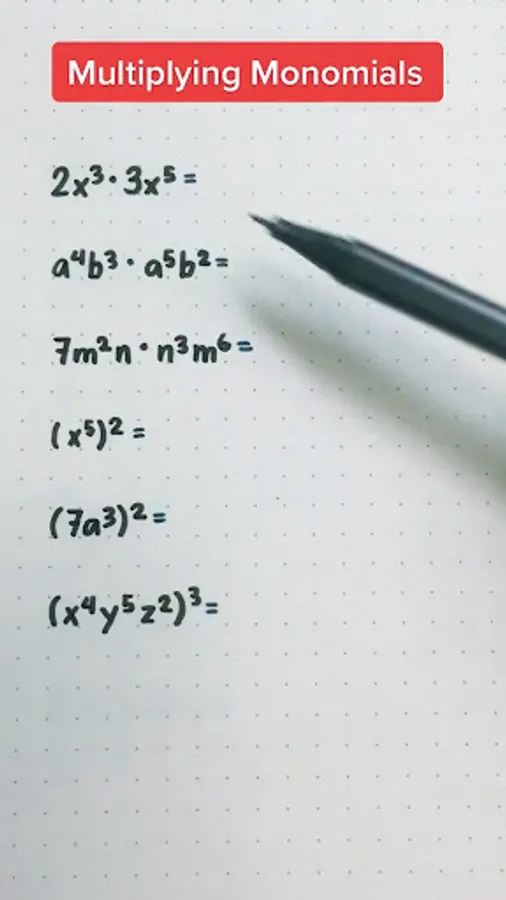 Multiplying Monomials
2x³·3x⁵=
a⁴b³·a⁵b²=
7m²n·n³m⁶=
(x⁵)²=
(7a³)²=
(x⁴y⁵z²)³=